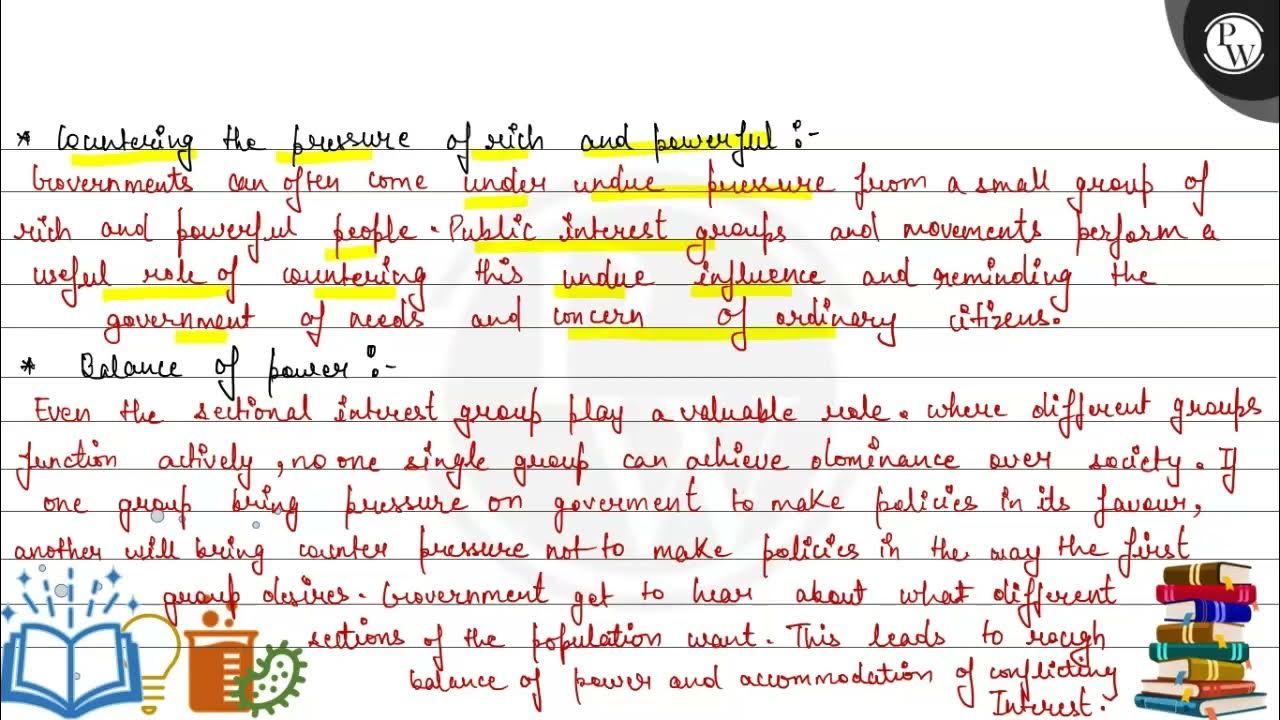 PW
* Countering the pressure of rich and powerful :-
Governments can often come under undue pressure from a small group of
rich and powerful people. Public interest groups and movements perform a
useful role of countering this undue influence and reminding the
government of needs and concern of ordinary citizens.
* Balance of power :-
Even the sectional interest group play a valuable role. where different groups
function actively, no one single group can achieve dominance over society. If
one group bring pressure on goverment to make policies in its favour,
another will bring counter pressure not to make policies in the way the first
group desires. Government get to hear about what different
sections of the population want. This leads to rough
balance of power and accommodation of conflicting
Interest.